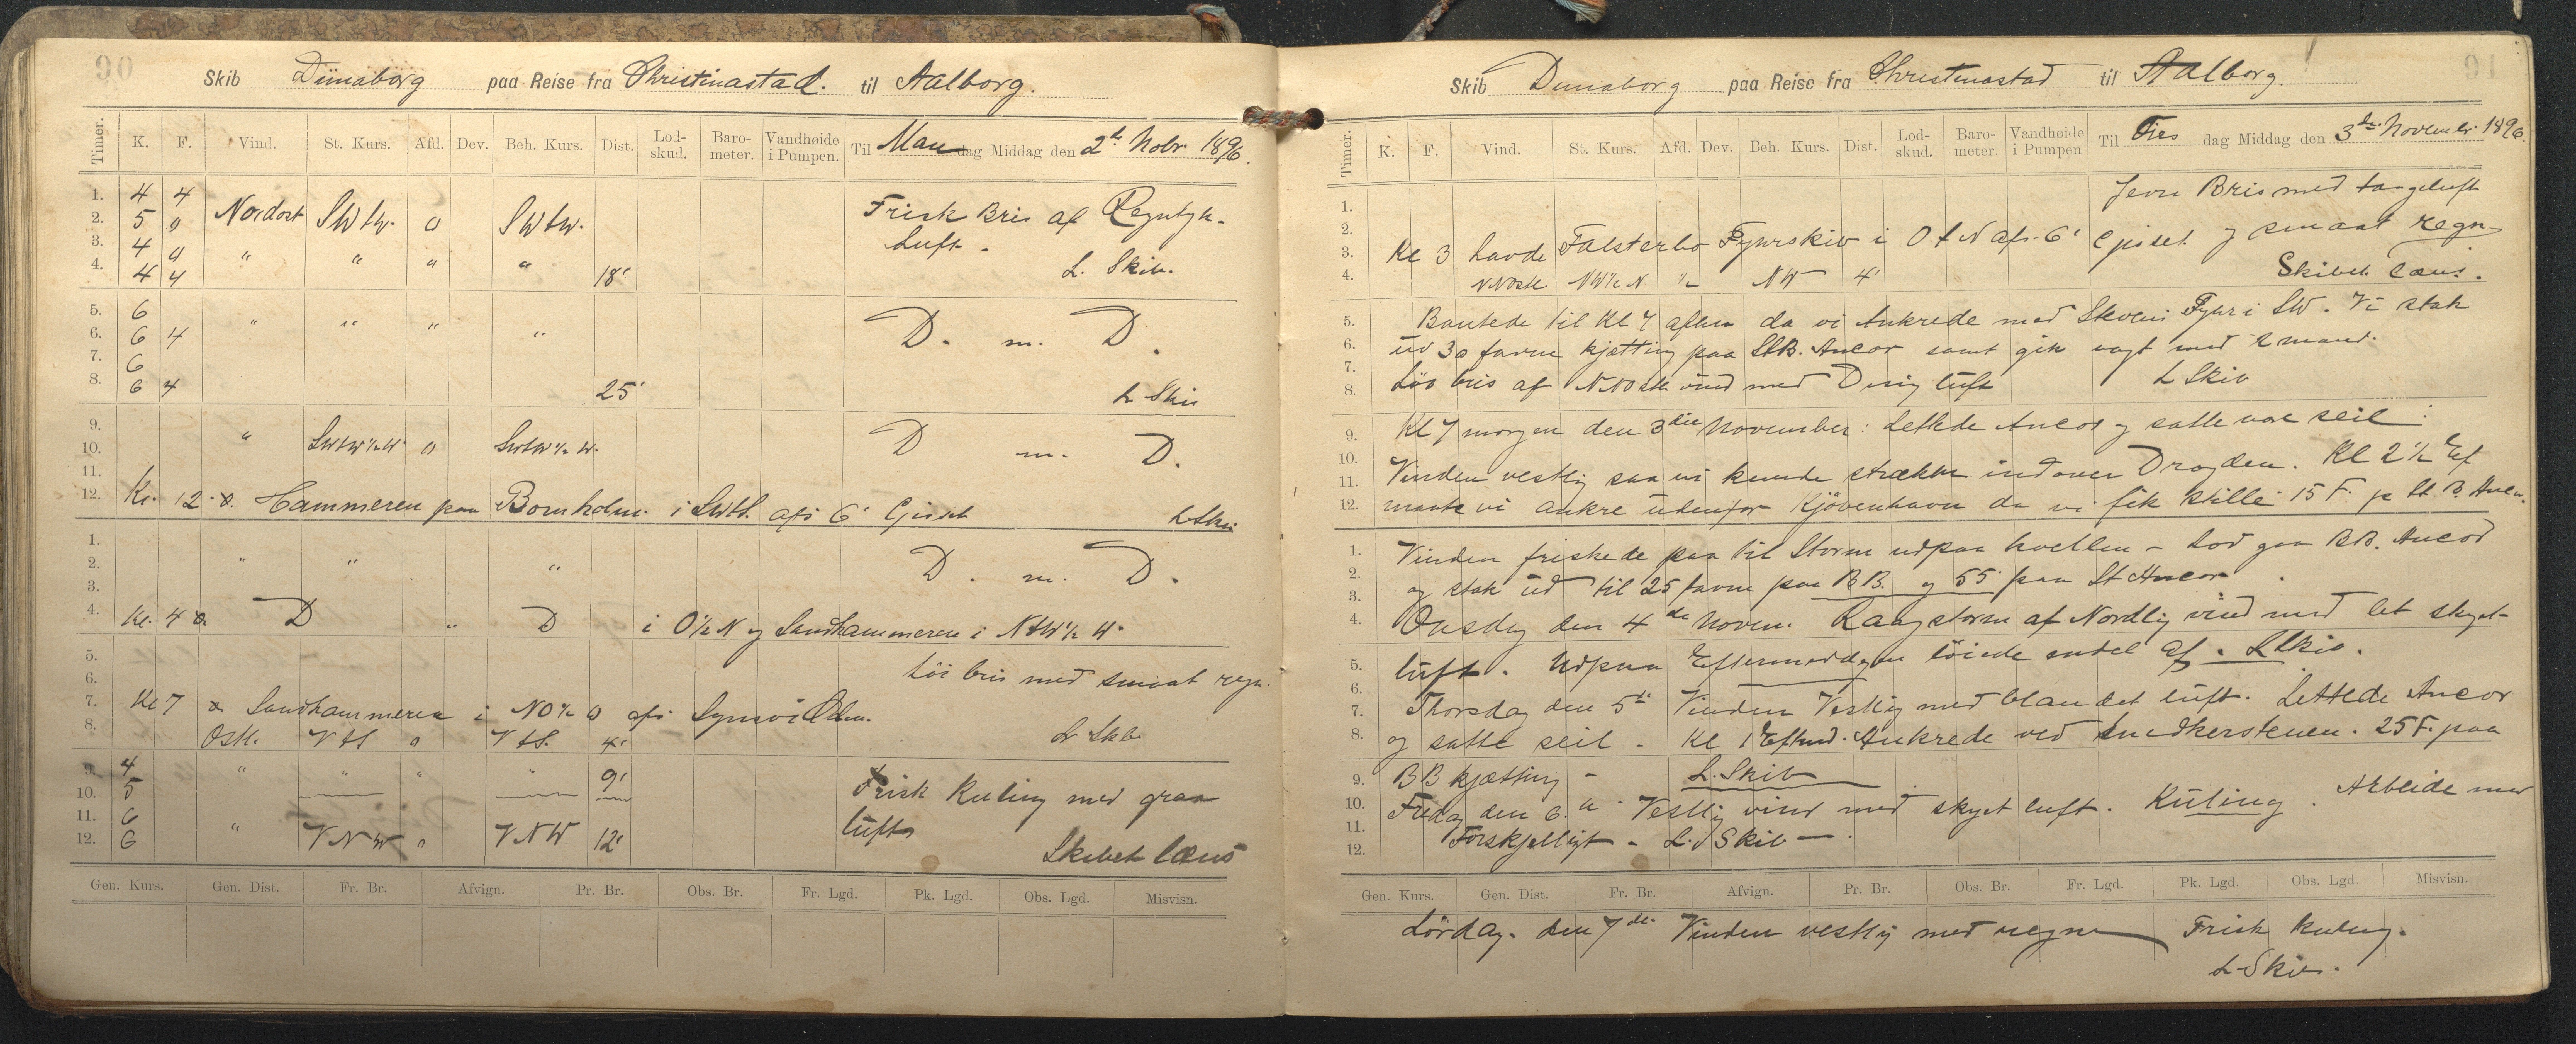 90
Skib Dünaborg paa Reise fra Christinastad. til Aalborg.
Timer. K. F. Vind. St. Kurs. Afd. Dev. Beh. Kurs. Dist. Lod-skud. Baro-meter. Vandhøide i Pumpen. Til Man dag Middag den 2de Nobr. 1896.
1. 4 4
2. 5 0 Nordost SWtW. 0 SWtW. Frisk Bris af Regntyk.
3. 4 0 " " " " Luft -
4. 4 4 18' L. Skib.
5. 6
6. 6 4 " " " " D. m. D.
7. 6
8. 6 4 25' L Skib
9. " SWtW½W 0 SWtW½W. D m. D.
10.
11.
12. Kl. 12 Hammeren paa Bornholm. i SWtS. afs 6' Gisset L Skib
1.
2. " " " D. m. D.
3.
4. Kl. 4 D " D i O½N og Sandhammeren i NtW½W.
5.
6. Løi bris med smaat regn.
7. Kl 7 Sandhammeren i NO½O afs
8. Ostl. VtS 0 VtS. 4' L Skb.
9. 4 " " " " 9'
10. 5 Frisk Kuling med graa
11. 6 luft
12. 6 " VNW 0 VNW 12' Skibet læns
Gen. Kurs. Gen. Dist. Fr. Br. Afvign. Pr. Br. Obs. Br. Fr. Lgd. Pk. Lgd. Obs. Lgd. Misvisn.
91
Skib Dünaborg paa Reise fra Christinastad til Aalborg.
Timer. K. F. Vind. St. Kurs. Afd. Dev. Beh. Kurs. Dist. Lod-skud. Baro-meter. Vandhøide i Pumpen Til Tirs dag Middag den 3de November 1896.
1. Jevn Bris med taageluft
2. og smaat regn
3. Kl 3 havde Falsterbo Fyurskib i OtN afs. 6' Gisset
4. NNostl. NW½N " NW 4' Skibet læns.
5. Bautede til Kl 7 aften da vi Ankrede med Stevens Fyur i SW. Vi stak
6. ud 30 favne kjætting paa StB. Ancor samt gik vagt med 2 mand.
7.
8. Løi bris af NNOstl. vind med Disig luft L Skib
9. Kl 7 morgen den 3die November: Lettede Ancor og satte vor seil:
10.
11. Vinden vestlig saa vi kunde strække indover Drogden. Kl 2½ Ef
12. maate vi ankre udenfor Kjøvenhavn da vi fik stille 15 F. p St. B. Anc.
1. Vinden friskede paa til Storm udpaa kvellen - lod gaa BB. Ancor
2.
3. og stak ud til 25 favne paa BB. og 55 paa St Ancor.
4. Onsdag den 4de Novem. Laagstorm af Nordlig vind med let skyet-
5. luft. Udpaa Eftermiddagen løiede endel af. L Skib.
6.
7. Thorsdag den 5te Vinden Vestlig med blandet luft. Lettede Ancor
8. og satte seil - Kl 1 Eftmd. Ankrede ved Snedkerstenen. 25 F. paa
9. BB kjætting - L. Skib
10. Fredag den 6. Vestlig vind med skyet luft. Kuling. Arbeide med
11.
12. Forskjelligt - L. Skib -
Gen. Kurs. Gen. Dist. Fr. Br. Afvign. Pr. Br. Obs. Br. Fr. Lgd. Pk. Lgd. Obs. Lgd. Misvisn.
Lørdag. den 7de Vinden vestlig med regn Frisk kuling.
L Skib.